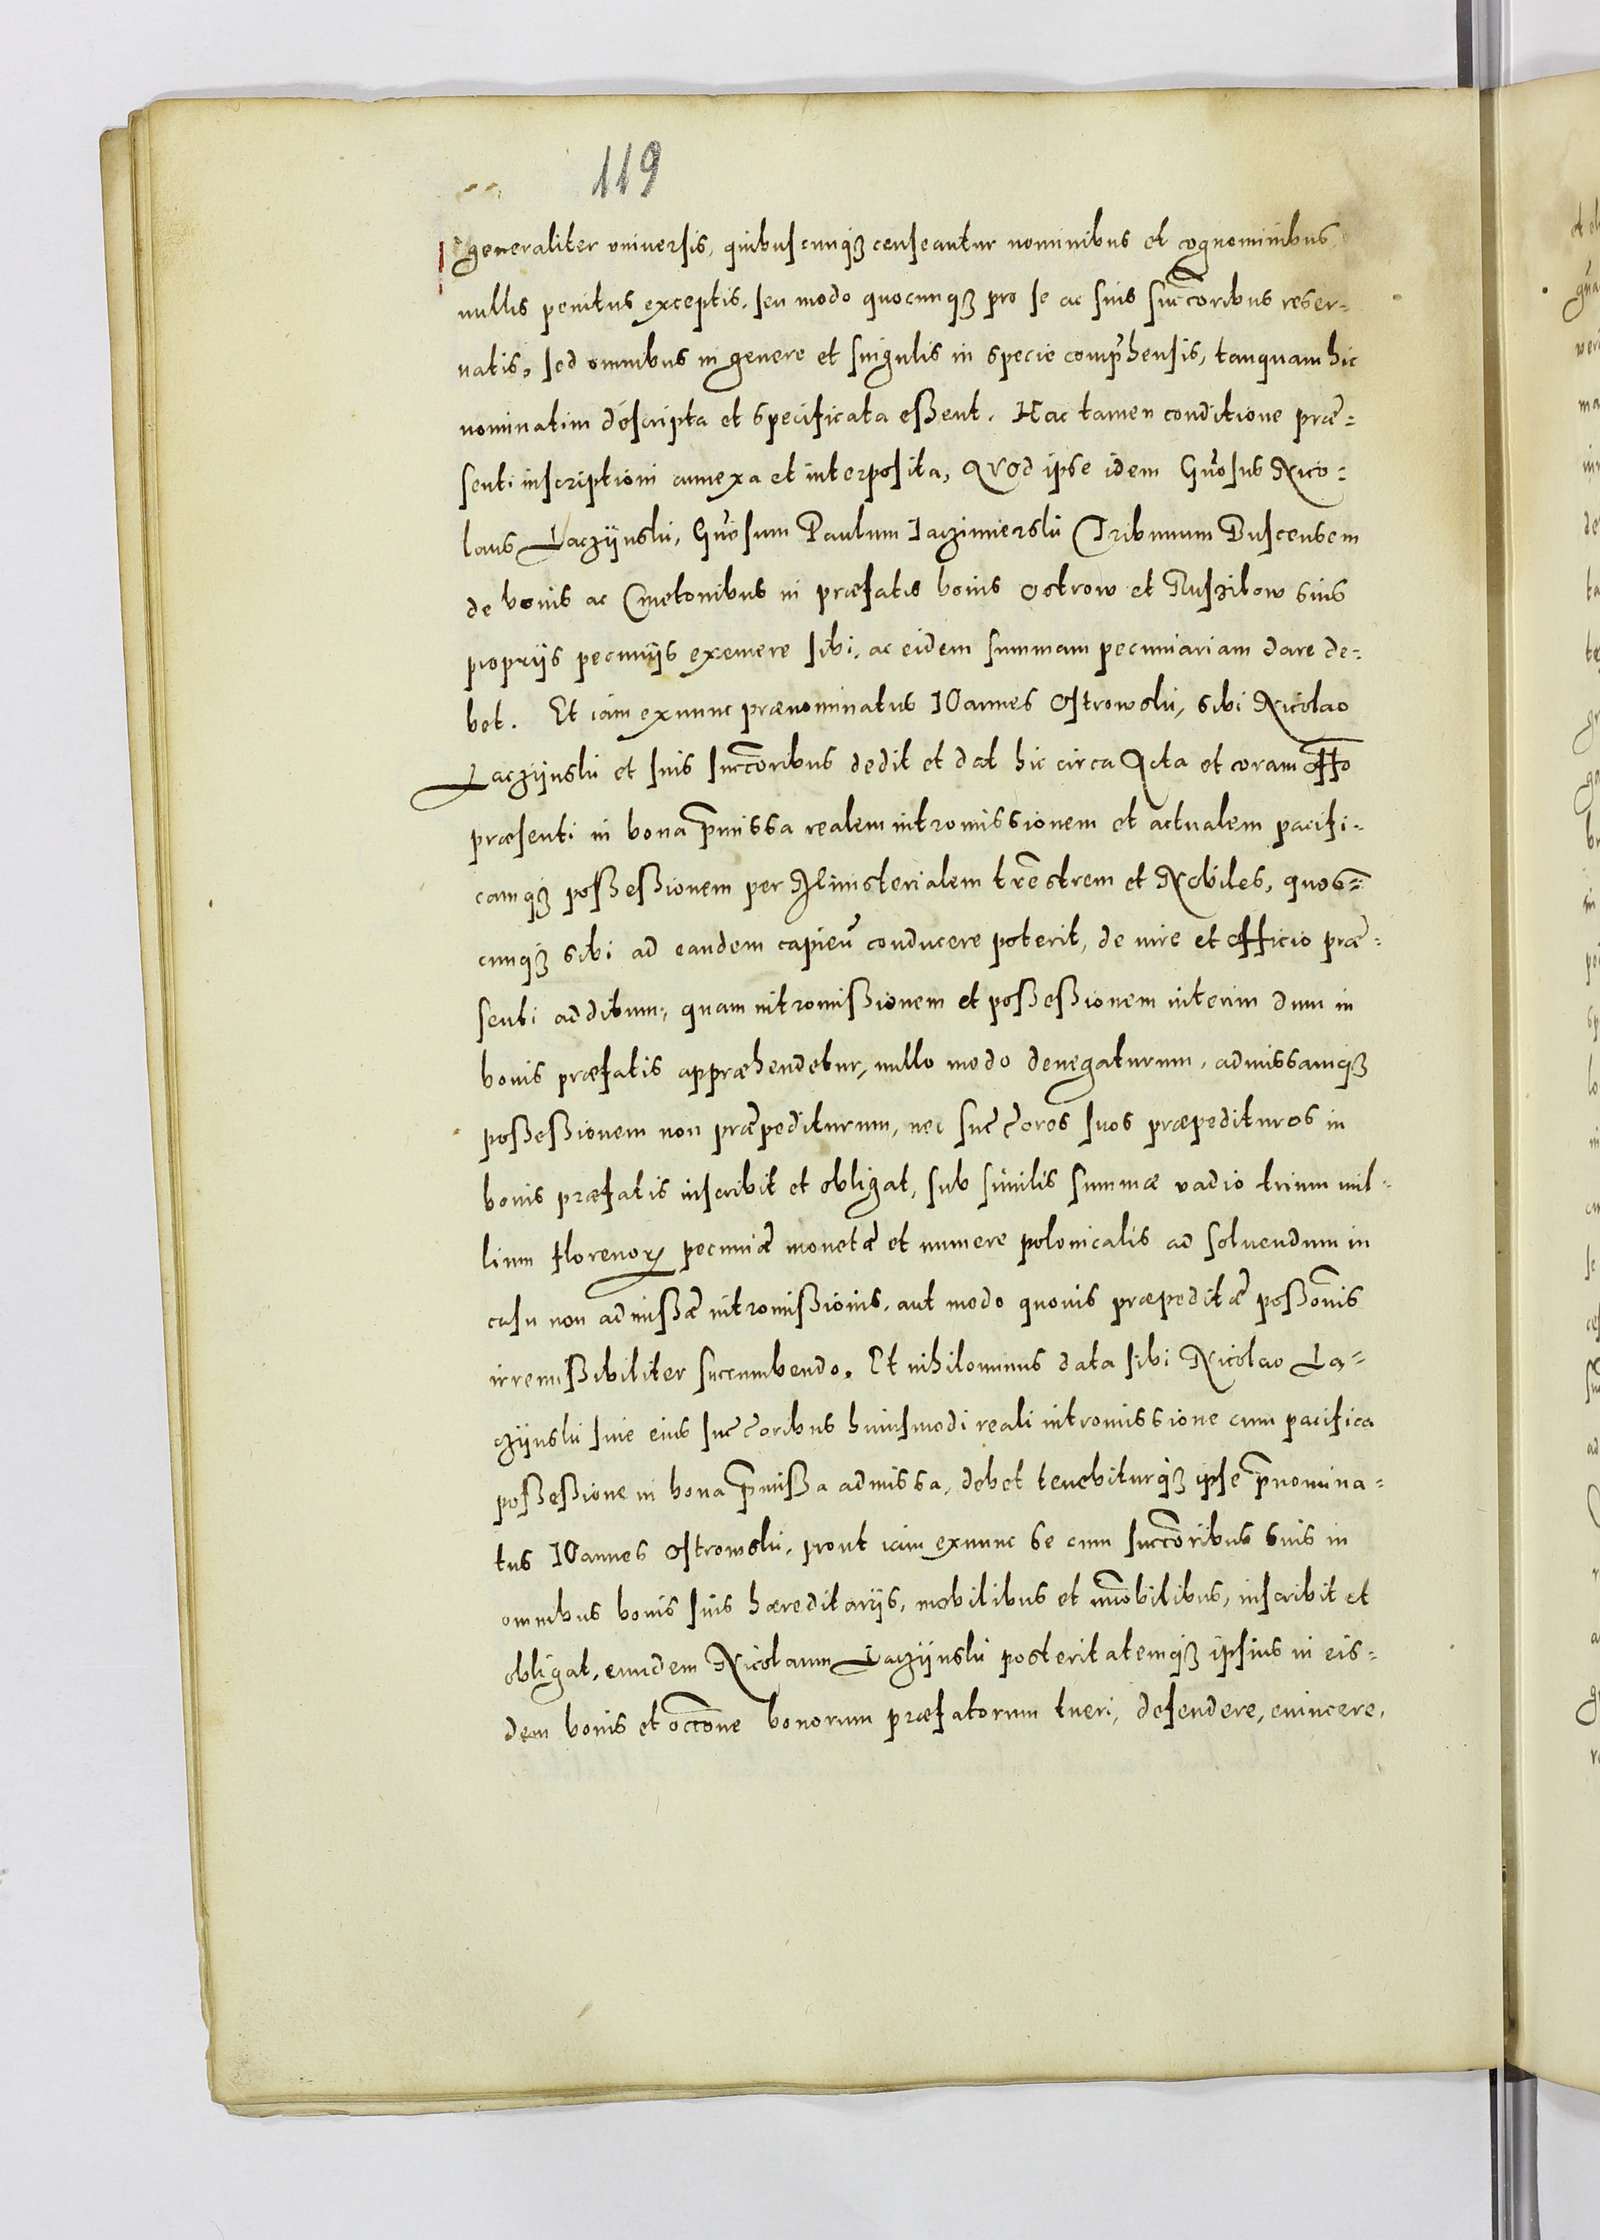 119
generaliter vniuersis, quibuscunqȝ censeantur nominibus et cognominibus,
nullis penitus exceptis, seu modo quocunqȝ pro se ac suis succoribus reser-
uatis, sed omnibus in genere et singulis in specie comphensis, tanquam hic
nominatim descripta et specificata eßent. Hac tamen conditione præ-
senti inscriptioni annexa et interposita, Quod ipse idem Gnosus Nico-
laus Łaczÿnski, Gnosum Paulum Jaczimierski Tribunum Buscensem
de bonis ac Cmetonibus in præfatis bonis Ostrow et Ruszibow suis
proprijs pecunijs exemere sibi, ac eidem summam pecuniariam dare de-
bet. Et iam exnunc prænominatus IOannes Ostrowski, sibi Nicolao
Łaczÿnski et suis succoribus dedit et dat hic circa Acta et coram Offo
præsenti in bona pmissa realem intromissionem et actualem pacifi-
camqȝ poßeßionem per Ministerialem trrestrem et Nobiles, quos-
cunqȝ sibi ad eandem capien conducere poterit, de iure et Officio præ-
senti additum, quam intromißionem et poßeßionem interim dum in
bonis præfatis appræhendetur, nullo modo denegaturum, admissamqȝ
poßeßionem non præpediturum, nec succores suos præpedituros in
bonis præfatis inscribit et obligat, sub similis summæ vadio trium mil-
lium florenorꝝ pecuniæ monetæ et numere polonicalis ad soluendum in
casu non admißæ intromißionis, aut modo quouis præpeditæ poßonis
irremißibiliter succumbendo. Et nihilominus data sibi Nicolao Ła-
czÿnski siue eius succoribus huiusmodi reali intromissione cum pacifica
poßeßione in bona pmißa admissa, debet tenebiturqȝ ipse pnomina-
tus IOannes Ostrowski, prout iam exnunc se cum succoribus suis in
omnibus bonis suis hæreditarijs, mobilibus et immobilibus, inscribit et
obligat, eundem Nicolaum Łaczÿnski posteritatemqȝ ipsius in eis-
dem bonis et occone bonorum præfatorum tueri, defendere, euincere,